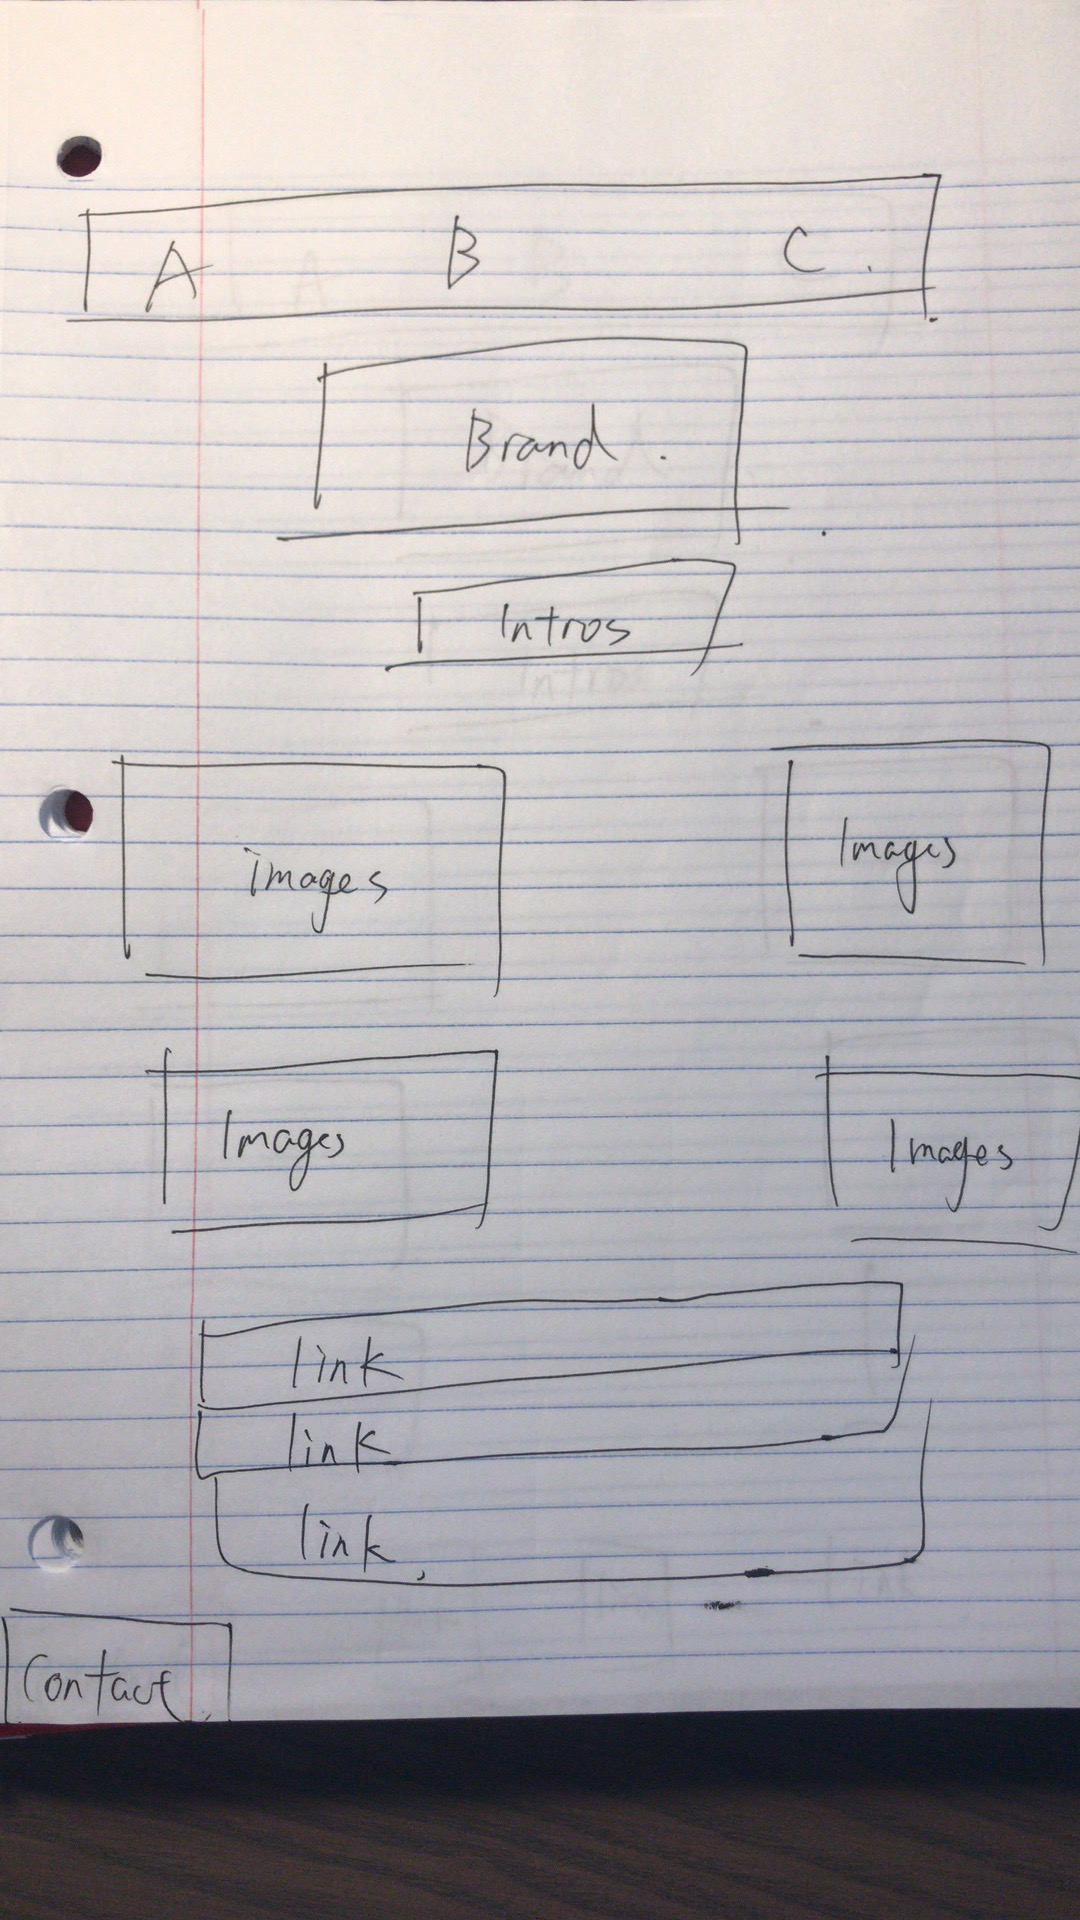 A B C .
Brand .
Intros
images Images
Images Images
link
link
link .
Contact